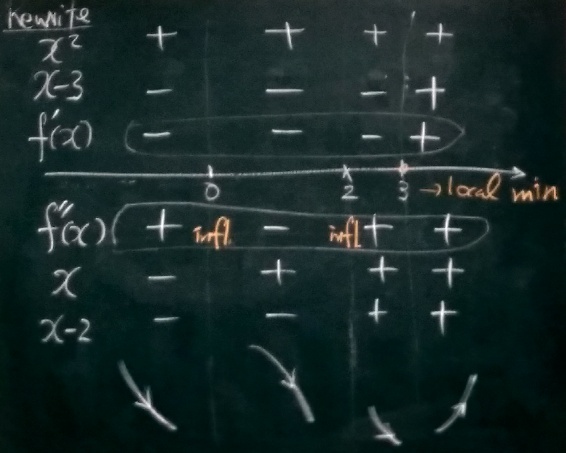 Rewrite
x² + + + +
x-3 - - - +
f'(x) - - - +
0 2 3 → local min
f''(x) + infl. - infl + +
x - + + +
x-2 - - + +